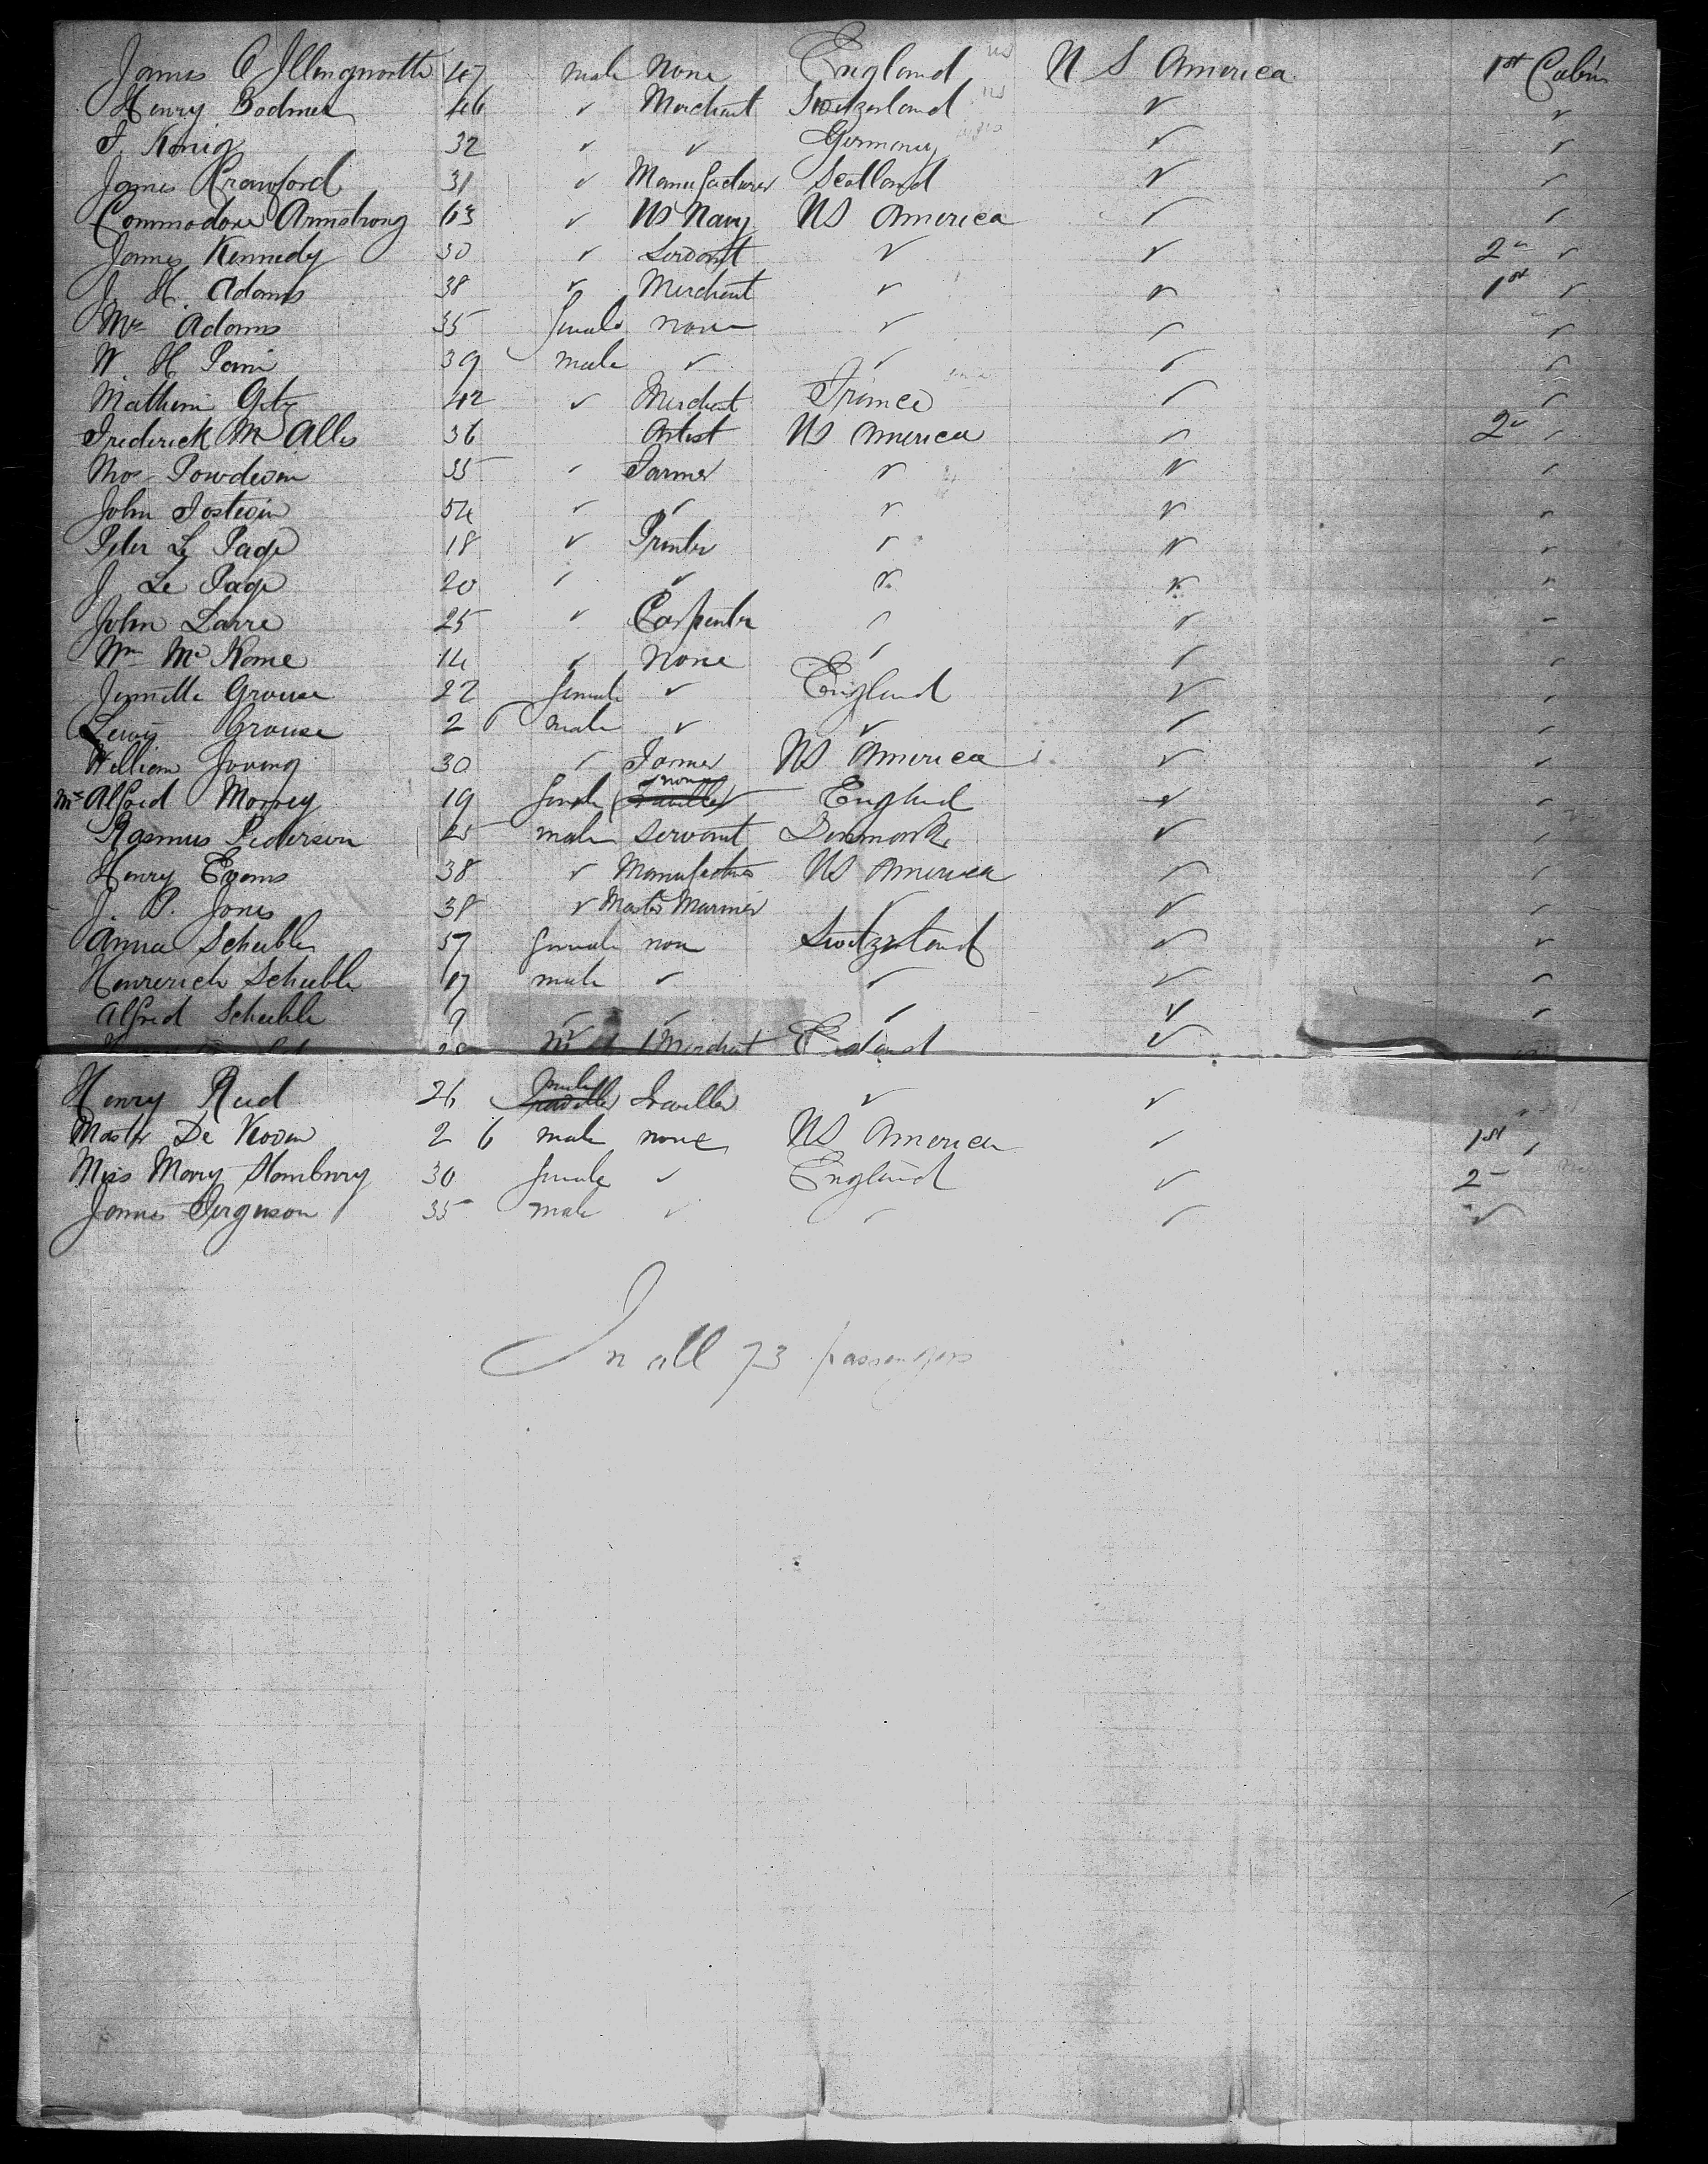 James C Illingworth 47 male none England US U S America 1st Cabin
Henry Bodmer 46 ✓ Merchant Switzerland US ✓ ✓
F. König 32 ✓ ✓ Germany ✓ ✓
James Crawford 31 ✓ Manufacturer Scotland ✓ ✓
Commodore Armstrong 63 ✓ US Navy US America ✓ ✓
James Kennedy 30 ✓ Servant ✓ ✓ 2 ✓
J. H. Adams 38 ✓ Merchant ✓ ✓ 1st ✓
Mrs Adams 35 female none ✓ ✓ ✓
W. H. 39 male ✓ ✓ ✓ ✓
42 ✓ Merchant France ✓ ✓
Frederick M 36 Artist US America ✓ 2 ✓
35 ✓ Farmer ✓ ✓ ✓
John 54 ✓ ✓ ✓ ✓ ✓
Peter Le Page 18 ✓ Printer ✓ ✓ ✓
J Le Page 20 ✓ ✓ ✓ ✓ ✓
John Larre 25 ✓ Carpenter ✓ ✓ ✓
Wm Mc Kome 14 ✓ none ✓ ✓ ✓
Grouse 22 female ✓ England ✓ ✓
Lewis Grouse 2 6 male ✓ ✓ ✓ ✓
William 30 ✓ Farmer US America ✓ ✓
Mrs Alfred 19 female none England ✓ ✓
Rasmus Pederson 25 male Servant Denmark ✓ ✓
Henry Evans 38 ✓ Manufacturer US America ✓ ✓
J. P. Jones 38 ✓ Master Mariner ✓ ✓ ✓
Anna Scheibler 57 female none Switzerland ✓ ✓
Heinrich Scheible 17 male ✓ ✓ ✓ ✓
Alfred Scheible 9 ✓ ✓ ✓ ✓ ✓
Merchant England ✓
Henry Reid 26 male Traveller ✓ ✓ ✓
Master De Koven 2 6 male none US America ✓ 1st ✓
Miss Mary Stanbury 30 female ✓ England ✓ 2
James Ferguson 35 male ✓ ✓ ✓ ✓
In all 73 passengers